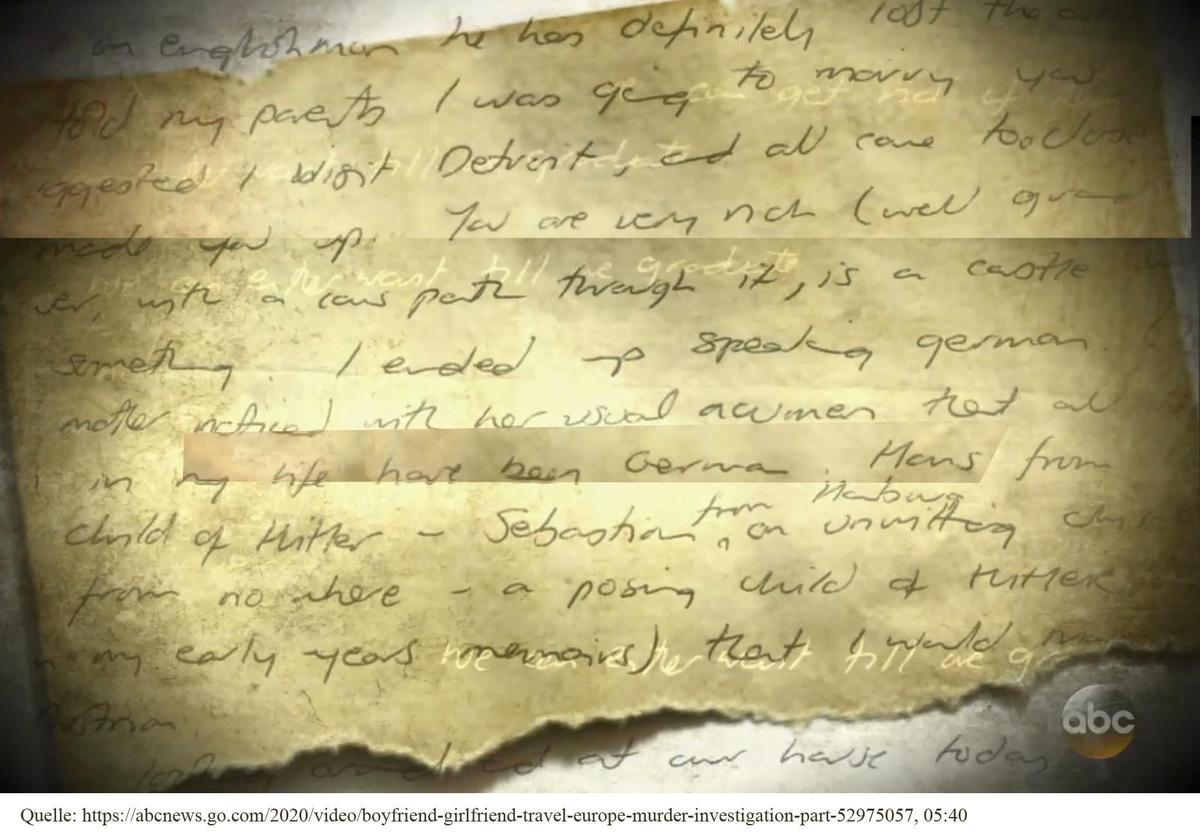 an englishman he has definitely lost the
told my parents I was going to marry you
I visit Detroit, and all came too close
made you up. You are very rich (well
with a cows path through it, is a castle
something. I ended up speaking german
mother noticed with her usual acumen that all
in my life have been German. Hans from
child of Hitler - Sebastian, from Marburg an unwitting
from no where - a posing child of Hitler
my early years memoirs) that I would
Austrian
around at our house today
we can either wait till we graduate
abc
Quelle: https://abcnews.go.com/2020/video/boyfriend-girlfriend-travel-europe-murder-investigation-part-52975057, 05:40